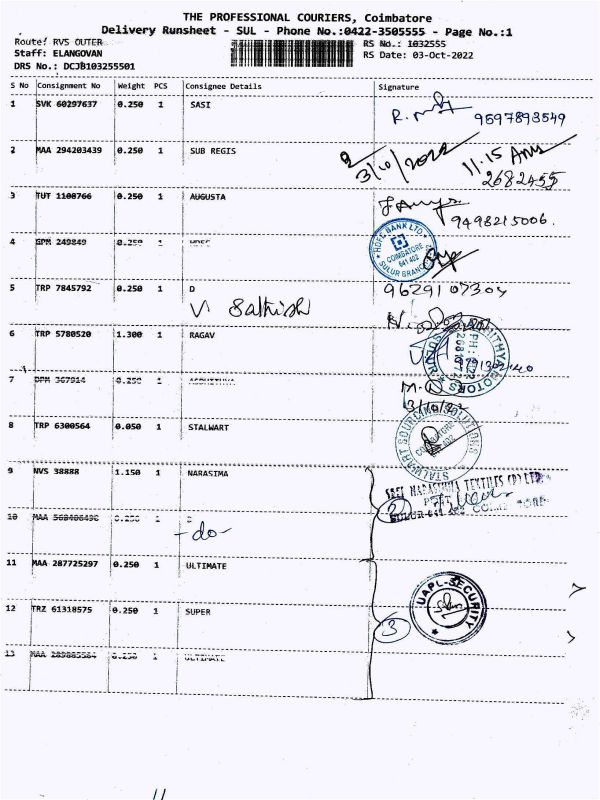 THE PROFESSIONAL COURIERS, Coimbatore
Delivery Runsheet - SUL - Phone No.:0422-3505555 - Page No.:1
Route: RVS OUTER
RS No.: 1032555
Staff: ELANGOVAN
RS Date: 03-Oct-2022
DRS No.: DCJB103255501
S No Consignment No Weight PCS Consignee Details Signature
1 SVK 60297637 0.250 1 SASI
9597893549
2 MAA 294203439 0.250 1 SUB REGIS
3/10/2022 11.15 Am
2682455
3 TUT 1108766 0.250 1 AUGUSTA
9498215006.
4 GPM 249849 0.250 1 HDFC
HDFC BANK LTD
COIMBATORE
641 402
SULUR BRANCH
5 TRP 7845792 0.250 1 D 9629107304
V. Sathish
6 TRP 5780520 1.300 1 RAGAV
7 0.250 1
3/10/22
8 TRP 6300564 0.050 1 STALWART
STALWART SOURCING SOLUTIONS
9 NVS 38888 1.150 1 NARASIMA
SREE NARASIMHA TEXTILES (P) LTD
2
10 0.250 1
-do-
11 MAA 287725297 0.250 1 ULTIMATE
UAPL-SECURITY
12 TRZ 61318575 0.250 1 SUPER
3
13 0.250 1 ULTIMATE